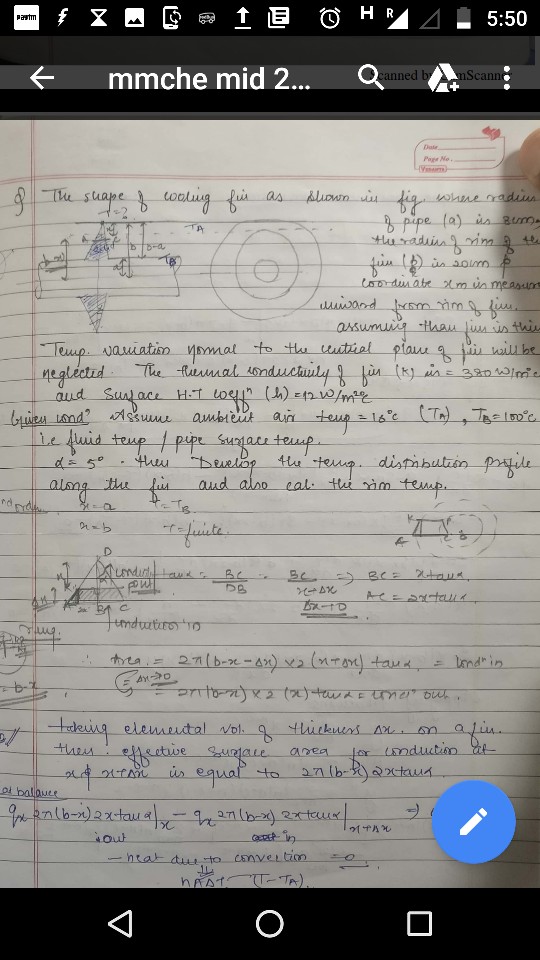 paytm
H
R
5:50
mmche mid 2...
Scanned by CamScanner
Date
Page No.
The shape of cooling fin as shown in fig. where radius
of pipe (a) is 8cm
the radius of rim of the
fin (b) is 20cm
coordinate x m is measure
inward from rim of fin.
assuming than fin is thin
Temp. variation normal to the central plane of fin will be
neglected. The thermal conductivity of fin (K) is = 380 W/m°c
and Surface H.T coeffⁿ (h) = 12 W/m²°c
Given condⁿ Assume ambient air temp = 15°c (TA), TB = 100°c
i.e fluid temp / pipe surface temp.
α = 5° . then Develop the temp. distribution profile
along the fin and also cal. the rim temp.
x = a T = TB
x = b T = finite.
tanα = BC/DB = BC/x+Δx ⇒ BC = x tanα
Δx→0 AC = 2x tanα
conduction in
∴ Area = 2π(b-x-Δx) x2 (x+Δx) tanα = condⁿ in
Δx→0 = 2π(b-x) x 2 (x) tanα = condⁿ out.
= b-x
taking elemental vol. of thickness Δx. on a fin.
then effective surface area for conduction at
x & x+Δx is equal to 2π(b-x)2x tanα
at balance
qx 2π(b-x) 2x tanα|x - qx 2π(b-x) 2x tanα|x+Δx ⇒
out in
- heat due to convection = 0
(T-TA)